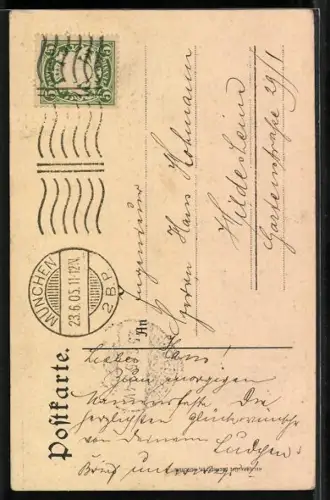 Postkarte.
5
5
MÜNCHEN
23.6.05.11-12N.
2 B.P.
An
Ingenieur
Herrn Hans Hohmann
Hildesheim
Gartenstraße 29/1
Lieber Hans!
Zum morgigen
Namensfeste Die
herzlichsten Glückwünsche
von Deinem Ludchen
Brief unterwegs